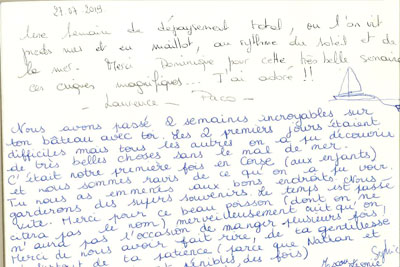 27.07.2019
1ère Semaine de dépaysement total, où l'on vit
pieds nus et en maillot, au rythme du soleil et de
la mer. Merci Dominique pour cette très belle semaine
ces criques magnifiques... J'ai adoré !!
- Laurence - Paco -
Nous avons passé 2 semaines incroyables sur
ton bâteau avec toi. Les 2 premiers jours étaient
difficiles mais tous les autres on a pu découvrir
de très belles choses sans le mal de mer.
C'était notre première fois en Corse (aux enfants)
et nous sommes ravis de ce qu'on a pu voir.
Tu nous as emmenés aux bons endroits. Nous
garderons des supers souvenirs. Le temps est passé
vite. Merci pour ce beau poisson (dont on ne
dira pas le nom) merveilleusement cuit qu'on
m'aura pas l'occasion de manger plusieurs fois
Merci de nous avoir fait rire, de ta gentillesse
de ta patience (parce que Nathan et
pénibles des fois)
Sophie